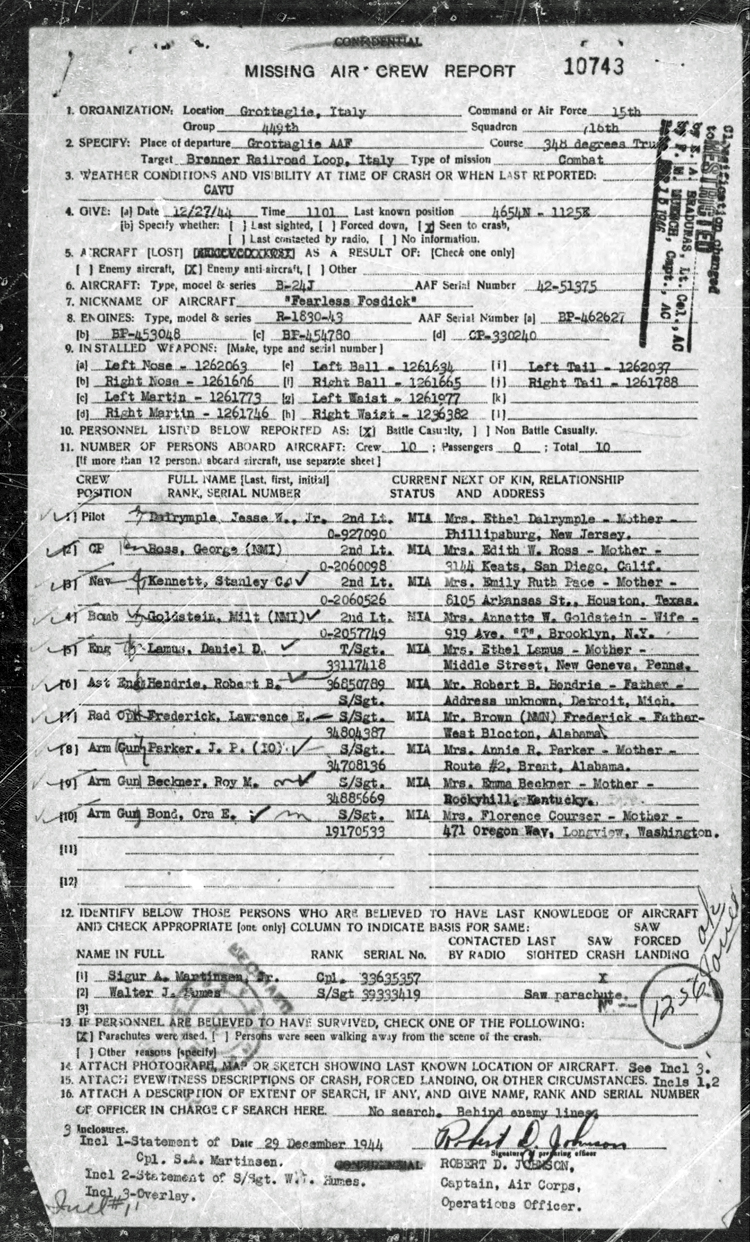 CONFIDENTIAL
MISSING AIR CREW REPORT 10743
1. ORGANIZATION: Location Grottaglie, Italy Command or Air Force 15th
Group 449th Squadron 716th
2. SPECIFY: Place of departure Grottaglie AAF Course 348 degrees True
Target Brenner Railroad Loop, Italy Type of mission Combat
3. WEATHER CONDITIONS AND VISIBILITY AT TIME OF CRASH OR WHEN LAST REPORTED:
CAVU
4. GIVE: [a] Date 12/27/44 Time 1101 Last known position 4654N - 1125E
[b] Specify whether: [ ] Last sighted, [ ] Forced down, [X] Seen to crash,
[ ] Last contacted by radio, [ ] No information.
5. AIRCRAFT [LOST] AS A RESULT OF: [Check one only]
[ ] Enemy aircraft, [X] Enemy anti-aircraft, [ ] Other
6. AIRCRAFT: Type, model & series B-24J AAF Serial Number 42-51375
7. NICKNAME OF AIRCRAFT "Fearless Fosdick"
8. ENGINES: Type, model & series R-1830-43 AAF Serial Number [a] BP-462627
[b] BP-453048 [c] BP-454780 [d] CP-330240
9. INSTALLED WEAPONS: [Make, type and serial number]
[a] Left Nose - 1262063 [e] Left Ball - 1261634 [i] Left Tail - 1262037
[b] Right Nose - 1261606 [f] Right Ball - 1261665 [j] Right Tail - 1261788
[c] Left Martin - 1261773 [g] Left Waist - 1261977 [k]
[d] Right Martin - 1261746 [h] Right Waist - 1236382 [l]
10. PERSONNEL LISTED BELOW REPORTED AS: [X] Battle Casualty, [ ] Non Battle Casualty.
11. NUMBER OF PERSONS ABOARD AIRCRAFT: Crew 10 ; Passengers 0 ; Total 10
[If more than 12 persons aboard aircraft, use separate sheet]
CREW FULL NAME [Last, first, initial] CURRENT NEXT OF KIN, RELATIONSHIP
POSITION RANK, SERIAL NUMBER STATUS AND ADDRESS
[1] Pilot Dalrymple, Jesse W., Jr. 2nd Lt. MIA Mrs. Ethel Dalrymple - Mother -
0-927090 Phillipsburg, New Jersey.
[2] CP Ross, George (NMI) 2nd Lt. MIA Mrs. Edith W. Ross - Mother -
0-2060098 3144 Keats, San Diego, Calif.
[3] Nav Kennett, Stanley C. 2nd Lt. MIA Mrs. Emily Ruth Pace - Mother -
0-2060526 8105 Arkansas St., Houston, Texas.
[4] Bomb Goldstein, Milt (NMI) 2nd Lt. MIA Mrs. Annette W. Goldstein - Wife -
0-2057749 919 Ave. "T", Brooklyn, N.Y.
[5] Eng Lamus, Daniel D. T/Sgt. MIA Mrs. Ethel Lamus - Mother -
33117418 Middle Street, New Geneva, Penna.
[6] Ast Eng Hendrie, Robert B. 36850789 MIA Mr. Robert B. Hendrie - Father -
S/Sgt. Address unknown, Detroit, Mich.
[7] Rad Op Frederick, Lawrence E. S/Sgt. MIA Mr. Brown (NMN) Frederick - Father-
34804387 West Blocton, Alabama
[8] Arm Gun Parker. J. P. (IO) S/Sgt. MIA Mrs. Annie R. Parker - Mother -
34708136 Route #2, Brent, Alabama.
[9] Arm Gun Beckner, Roy M. S/Sgt. MIA Mrs. Emma Beckner - Mother -
34885669 Rockyhill, Kentucky.
[10] Arm Gun Bond, Ora E. S/Sgt. MIA Mrs. Florence Courser - Mother -
19170533 471 Oregon Way, Longview, Washington.
[11]
[12]
12. IDENTIFY BELOW THOSE PERSONS WHO ARE BELIEVED TO HAVE LAST KNOWLEDGE OF AIRCRAFT
AND CHECK APPROPRIATE [one only] COLUMN TO INDICATE BASIS FOR SAME: SAW
CONTACTED LAST SAW FORCED
NAME IN FULL RANK SERIAL No. BY RADIO SIGHTED CRASH LANDING
[1] Sigur A. Martinsen, Jr. Cpl. 33635357 X
[2] Walter J. Humes S/Sgt 39333419 Saw parachute.
[3]
1256
13. IF PERSONNEL ARE BELIEVED TO HAVE SURVIVED, CHECK ONE OF THE FOLLOWING:
[X] Parachutes were used, [ ] Persons were seen walking away from the scene of the crash.
[ ] Other reasons [specify]
14. ATTACH PHOTOGRAPH, MAP OR SKETCH SHOWING LAST KNOWN LOCATION OF AIRCRAFT. See Incl 3.
15. ATTACH EYEWITNESS DESCRIPTIONS OF CRASH, FORCED LANDING, OR OTHER CIRCUMSTANCES. Incls 1,2
16. ATTACH A DESCRIPTION OF EXTENT OF SEARCH, IF ANY, AND GIVE NAME, RANK AND SERIAL NUMBER
OF OFFICER IN CHARGE OF SEARCH HERE. No search. Behind enemy lines
3 Inclosures.
Incl 1-Statement of Date 29 December 1944 Robert D. Johnson
Signature of preparing officer
Cpl. S.A. Martinsen. CONFIDENTIAL ROBERT D. JOHNSON,
Incl 2-Statement of S/Sgt. W.J. Humes. Captain, Air Corps,
Incl 3-Overlay. Operations Officer.
Incl #11
Classification changed
to RESTRICTED
by E. A. BRADUNAS, Lt. Col., AC
by F. M. MUENCH, Capt., AC